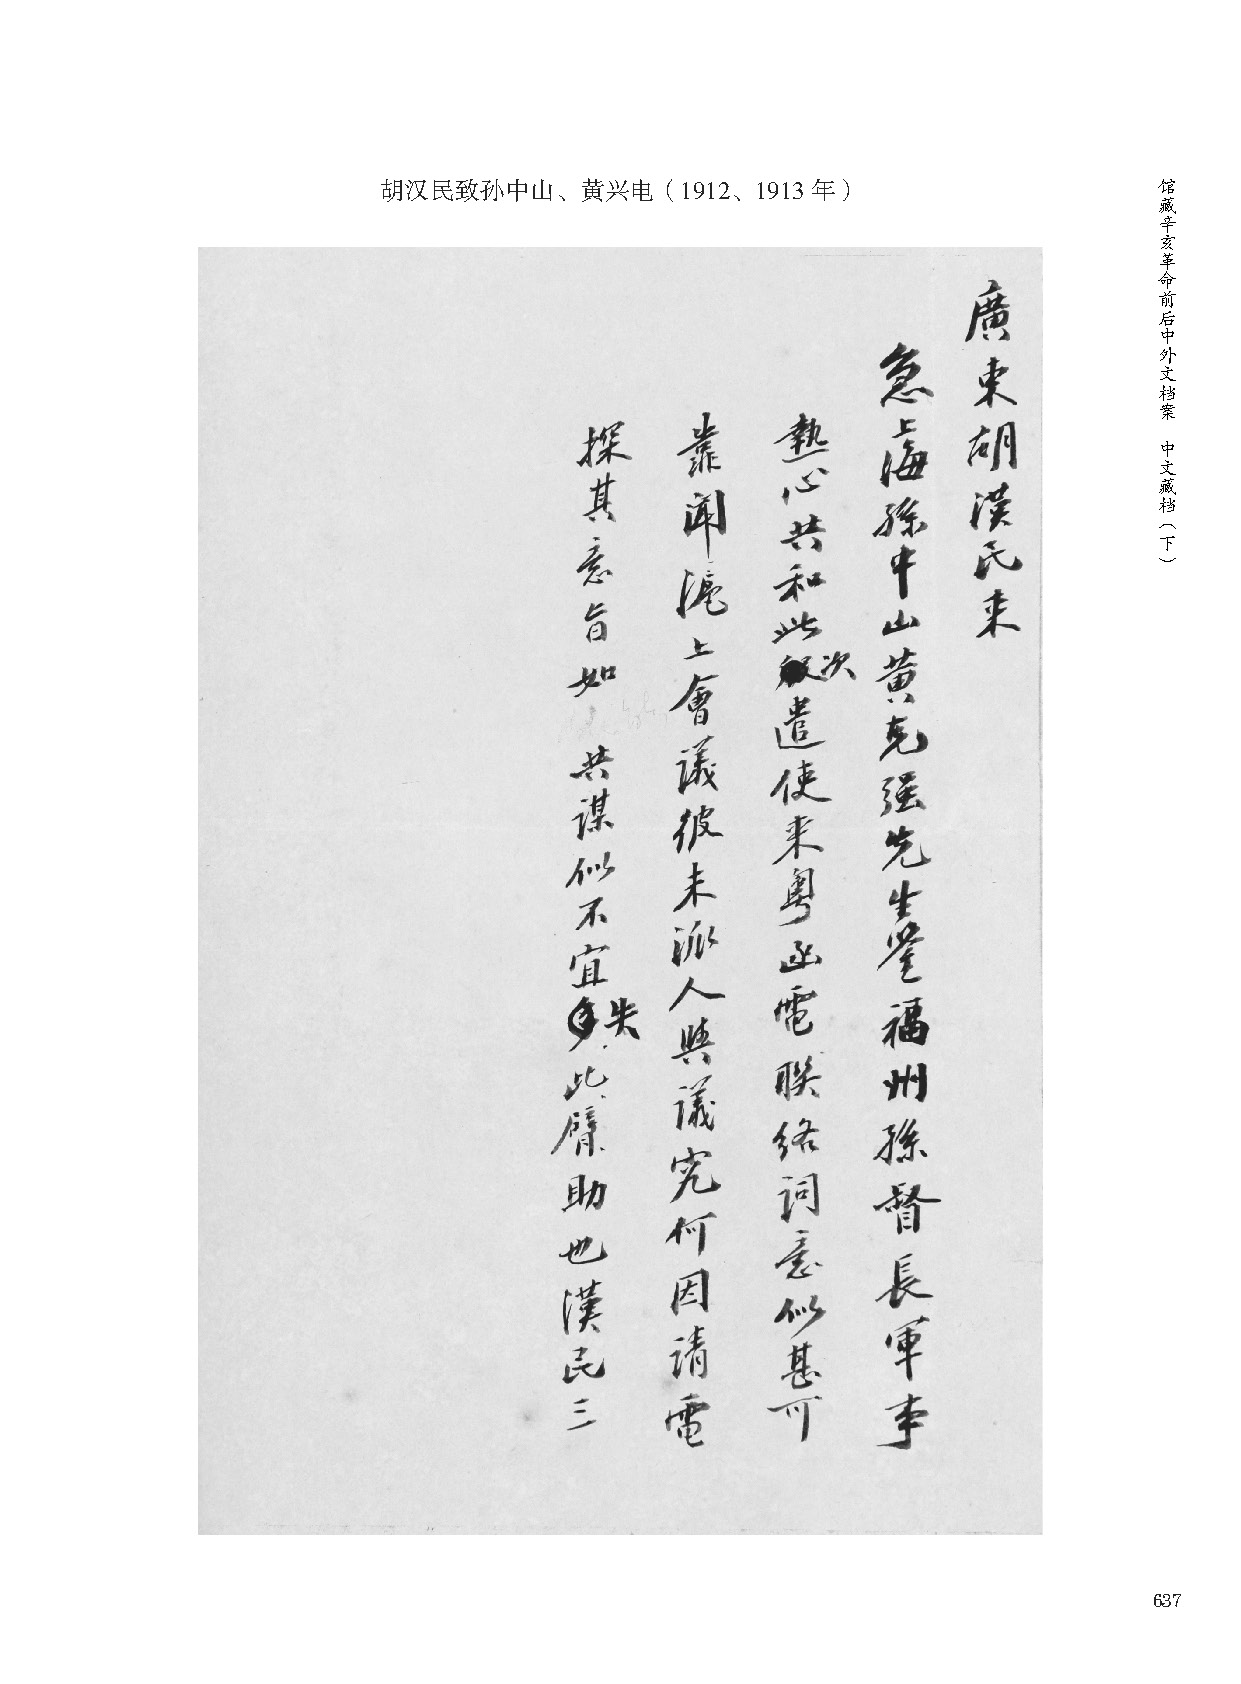 胡汉民致孙中山、黄兴电（1912、1913 年）
馆藏辛亥革命前后中外文档案 中文藏档（下）
廣東胡漢民来
急上海孫中山黄克强先生鑒福州孫督長軍事
熱心共和此次遣使来粤函電聯絡詞意似甚可
靠聞滬上會議彼未派人與議究何因請電
探其意旨如 共謀似不宜失此臂助也漢民三
637